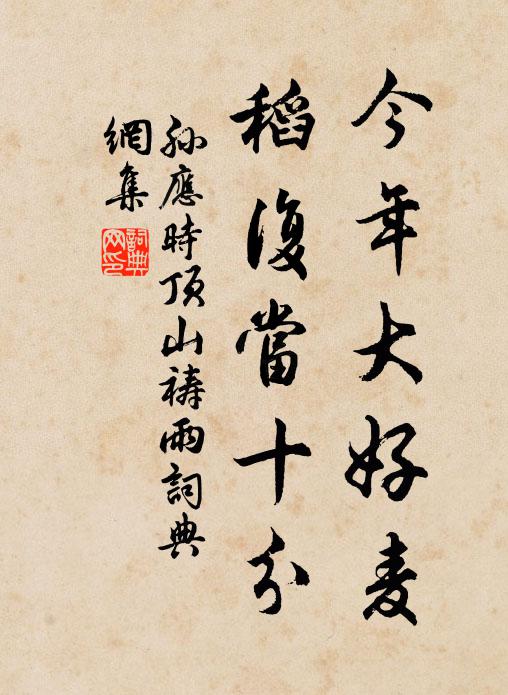 今年大好麦
稻復當十分
孫應時頂山禱雨詞典
網集
詞典
网印